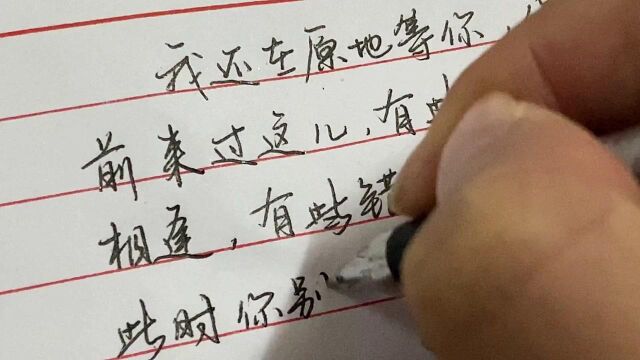 我还在原地等你，
前来过这儿，有些
相逢，有些错
些时你别